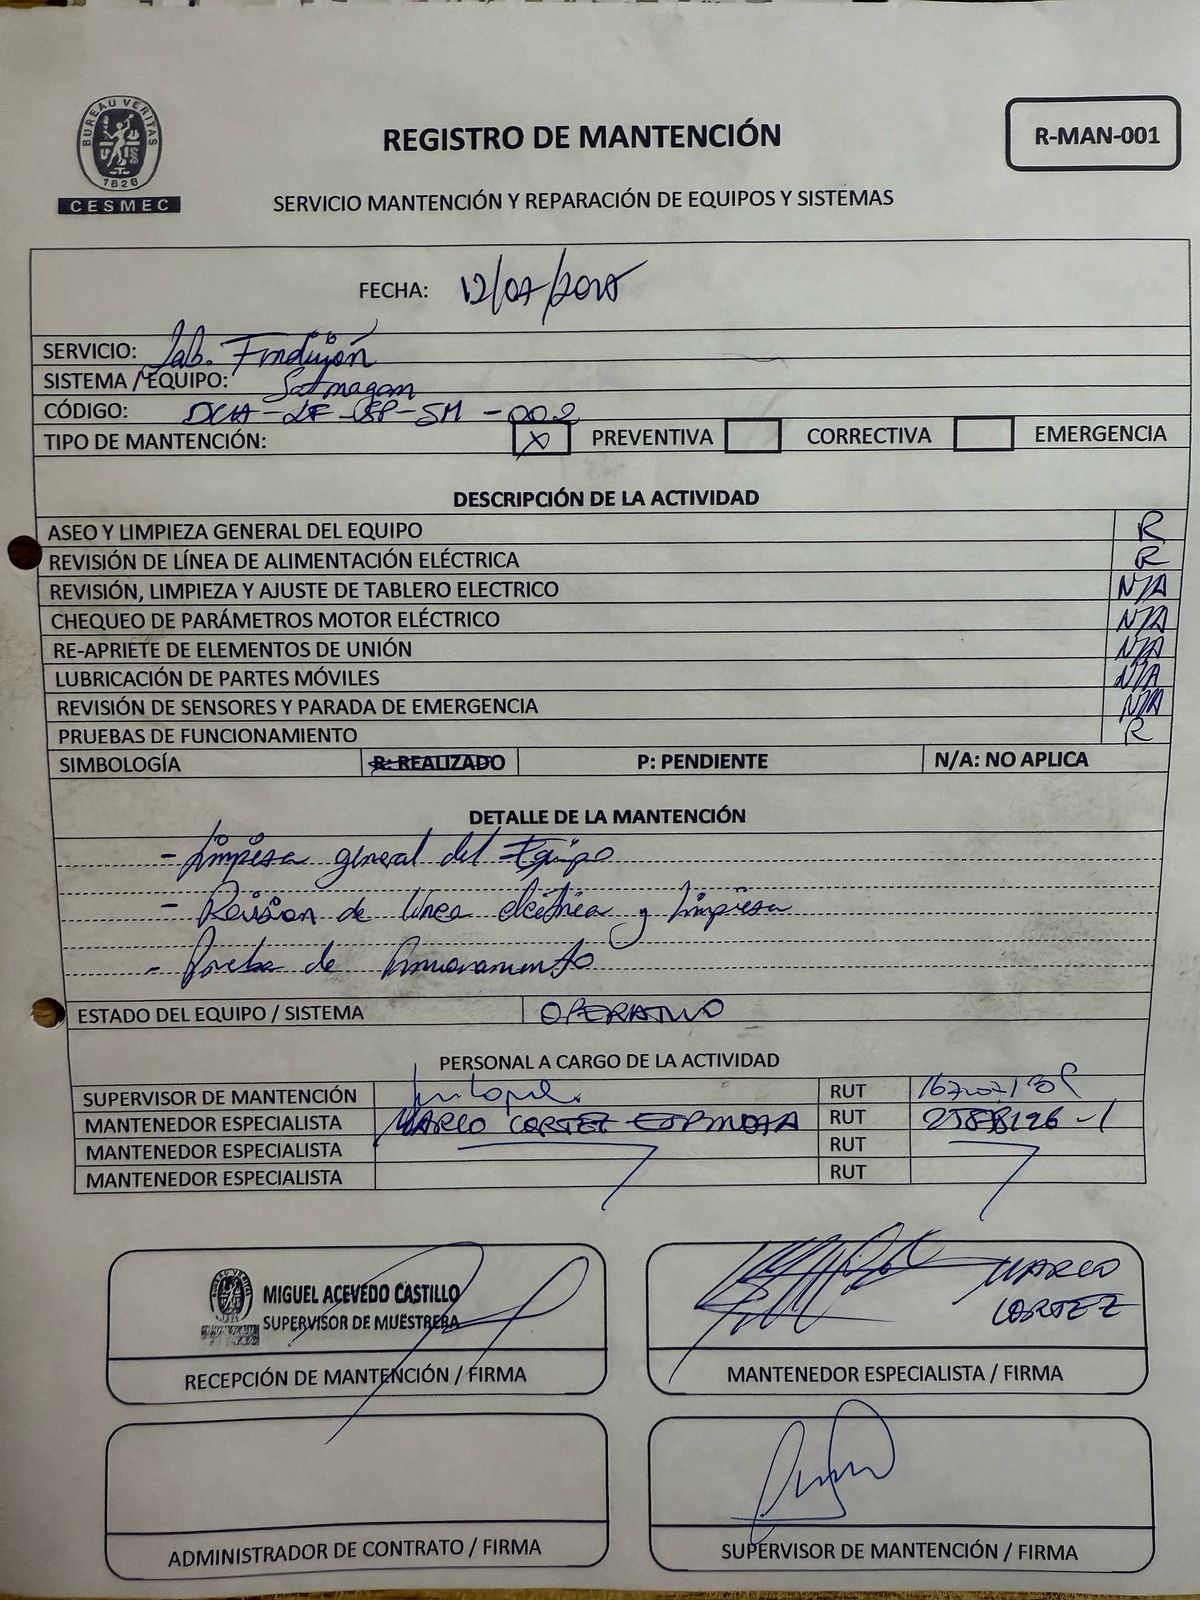 BUREAU VERITAS
1828
CESMEC
REGISTRO DE MANTENCIÓN
R-MAN-001
SERVICIO MANTENCIÓN Y REPARACIÓN DE EQUIPOS Y SISTEMAS
FECHA: 12/07/2025
SERVICIO: Lab. Fundición
SISTEMA / EQUIPO: Satmagan
CÓDIGO: DCH-LF-SM-002
TIPO DE MANTENCIÓN: X PREVENTIVA CORRECTIVA EMERGENCIA
DESCRIPCIÓN DE LA ACTIVIDAD
ASEO Y LIMPIEZA GENERAL DEL EQUIPO R
REVISIÓN DE LÍNEA DE ALIMENTACIÓN ELÉCTRICA R
REVISIÓN, LIMPIEZA Y AJUSTE DE TABLERO ELECTRICO N/A
CHEQUEO DE PARÁMETROS MOTOR ELÉCTRICO N/A
RE-APRIETE DE ELEMENTOS DE UNIÓN N/A
LUBRICACIÓN DE PARTES MÓVILES N/A
REVISIÓN DE SENSORES Y PARADA DE EMERGENCIA N/A
PRUEBAS DE FUNCIONAMIENTO R
SIMBOLOGÍA R: REALIZADO P: PENDIENTE N/A: NO APLICA
DETALLE DE LA MANTENCIÓN
- Limpiesa general del Equipo
- Revision de linea electrica y limpiesa
- Prueba de
ESTADO DEL EQUIPO / SISTEMA OPERATIVO
PERSONAL A CARGO DE LA ACTIVIDAD
SUPERVISOR DE MANTENCIÓN RUT
MANTENEDOR ESPECIALISTA MARCO CORTEZ ESPINOZA RUT
MANTENEDOR ESPECIALISTA RUT
MANTENEDOR ESPECIALISTA RUT
MIGUEL ACEVEDO CASTILLO
SUPERVISOR DE MUESTRERA
RECEPCIÓN DE MANTENCIÓN / FIRMA
MARCO
CORTEZ
MANTENEDOR ESPECIALISTA / FIRMA
ADMINISTRADOR DE CONTRATO / FIRMA
SUPERVISOR DE MANTENCIÓN / FIRMA